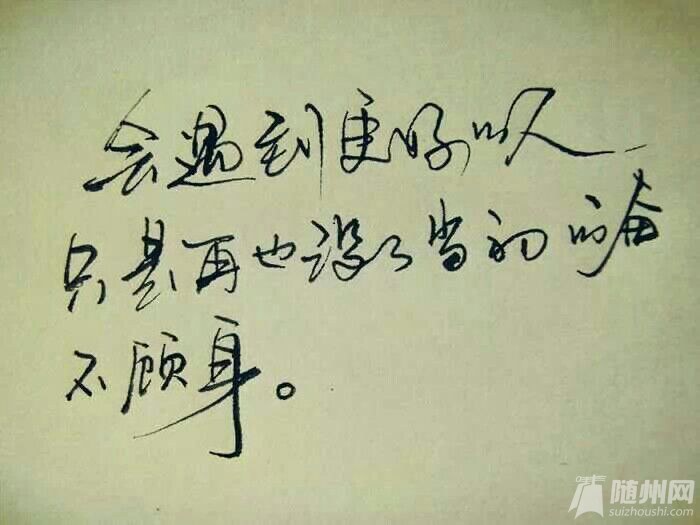 会遇到更好的人
只是再也没了当初的奋
不顾身。
随州网
suizhoushi.com